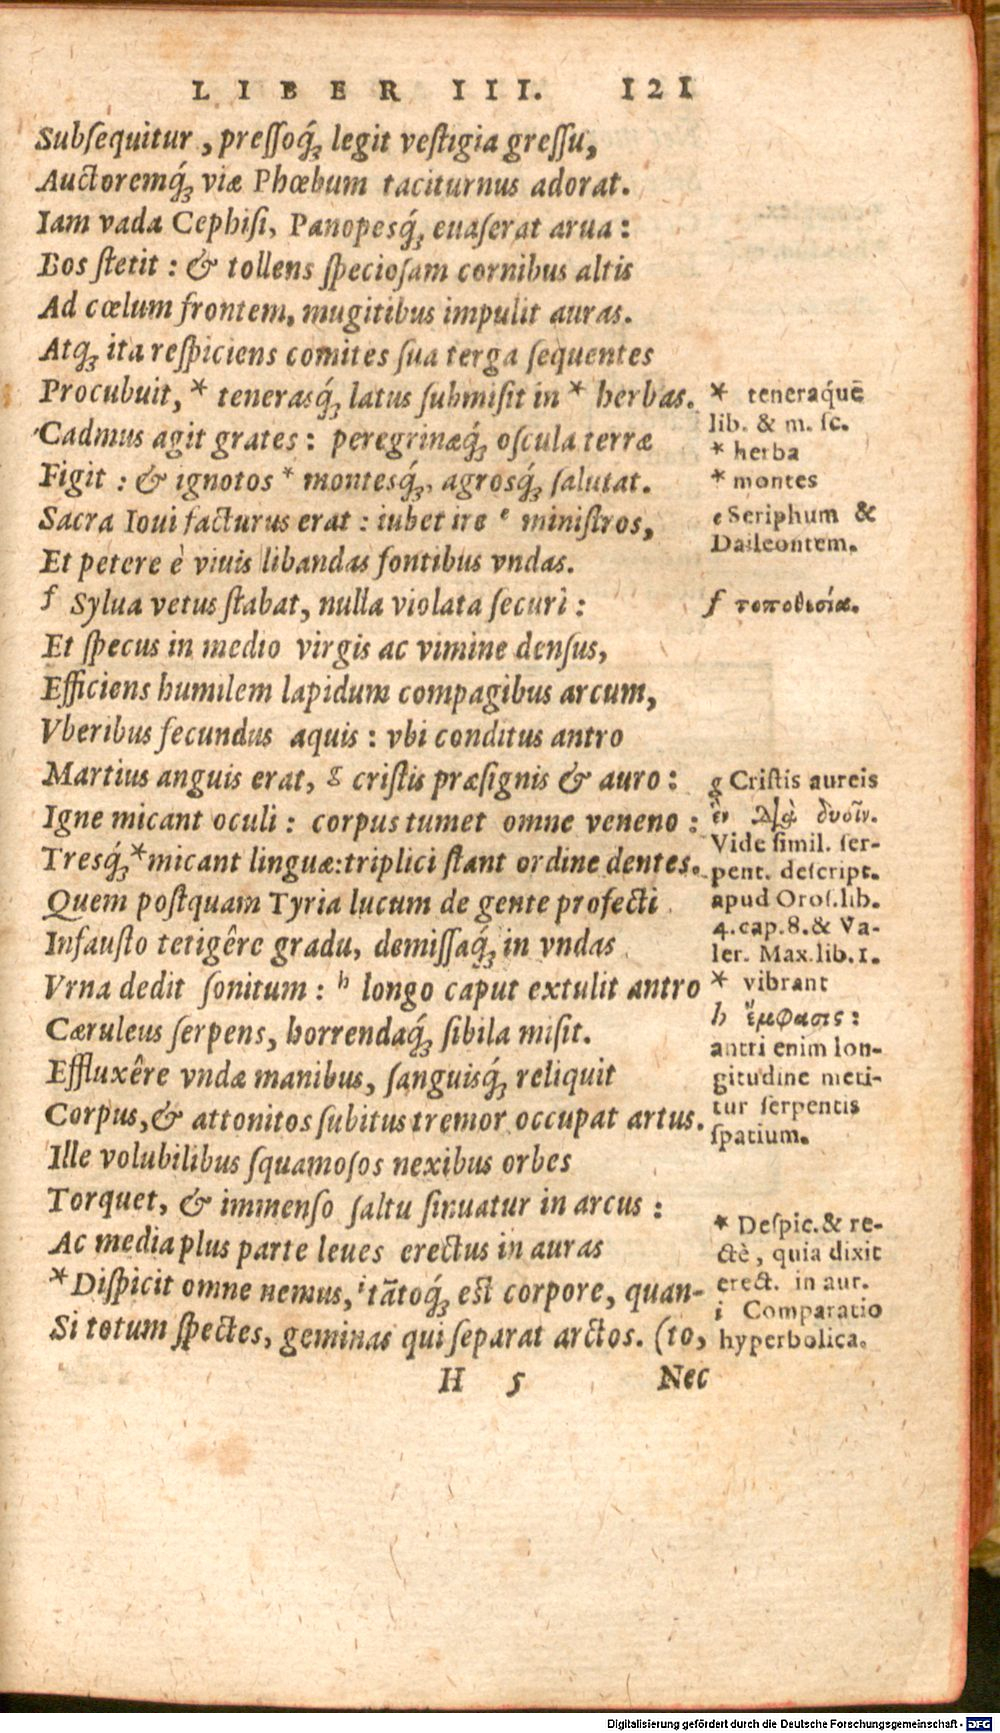 LIBER III. 121
Subſequitur, preſſoq́; legit veſtigia greſſu,
Auctoremq́; viæ Phœbum taciturnus adorat.
Iam vada Cephiſi, Panopesq́; euaſerat arua:
Bos ſtetit: & tollens ſpecioſam cornibus altis
Ad cœlum frontem, mugitibus impulit auras.
Atq; ita reſpiciens comites ſua terga ſequentes
Procubuit, * tenerasq́; latus ſubmiſit in * herbas.
Cadmus agit grates: peregrinæq́; oſcula terræ
Figit: & ignotos * montesq́;, agrosq́; ſalutat.
Sacra Ioui facturus erat: iubet ire e miniſtros,
Et petere è viuis libandas fontibus vndas.
f Sylua vetus ſtabat, nulla violata ſecuri:
Et ſpecus in medio virgis ac vimine denſus,
Efficiens humilem lapidum compagibus arcum,
Vberibus fecundus aquis: vbi conditus antro
Martius anguis erat, g criſtis præſignis & auro:
Igne micant oculi: corpus tumet omne veneno:
Tresq́; * micant linguæ: triplici ſtant ordine dentes.
Quem poſtquam Tyria lucum de gente profecti
Infauſto tetigêre gradu, demiſſaq́; in vndas
Vrna dedit ſonitum: h longo caput extulit antro
Cæruleus ſerpens, horrendaq́; ſibila miſit.
Effluxêre vndæ manibus, ſanguisq́; reliquit
Corpus, & attonitos ſubitus tremor occupat artus.
Ille volubilibus ſquamoſos nexibus orbes
Torquet, & immenſo ſaltu ſinuatur in arcus:
Ac media plus parte leues erectus in auras
*Diſpicit omne nemus, i tātoq́; eſt corpore, quan-
Si totum ſpectes, geminas qui ſeparat arctos. (to,
H 5 Nec
* teneraq́uē
lib. & m. ſc.
* herba
* montes
e Seriphum &
Daileontem.
f τοποθεσία.
g Criſtis aureis
ἓν διὰ δυοῖν.
Vide ſimil. ſer-
pent. deſcript.
apud Oroſ. lib.
4. cap. 8. & Va-
ler. Max. lib. 1.
* vibrant
h ἔμφασις:
antri enim lon-
gitudine meti-
tur ſerpentis
ſpatium.
* Deſpic. & re-
ctè, quia dixit
erect. in aur.
i Comparatio
hyperbolica.
Digitalisierung gefördert durch die Deutsche Forschungsgemeinschaft - DFG